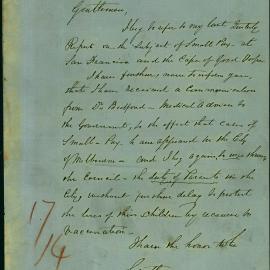 Gentlemen,
I beg to refer to my last Quarterly
Report on the subject of Small Pox at
San Francisco and the Cape of Good Hope
I have further now to inform you
that I have received a Communication
from Dr Bedford - Medical Adviser to
the Government, to the effect that cases of
Small-Pox have appeared in the City
of Melbourne - and I beg again to urge
the Council - the duty of Parents in the
City, without further delay to protect
the lives of their Children by recourse to
Vaccination -
I have the honor to be
Gentlemen
17/4